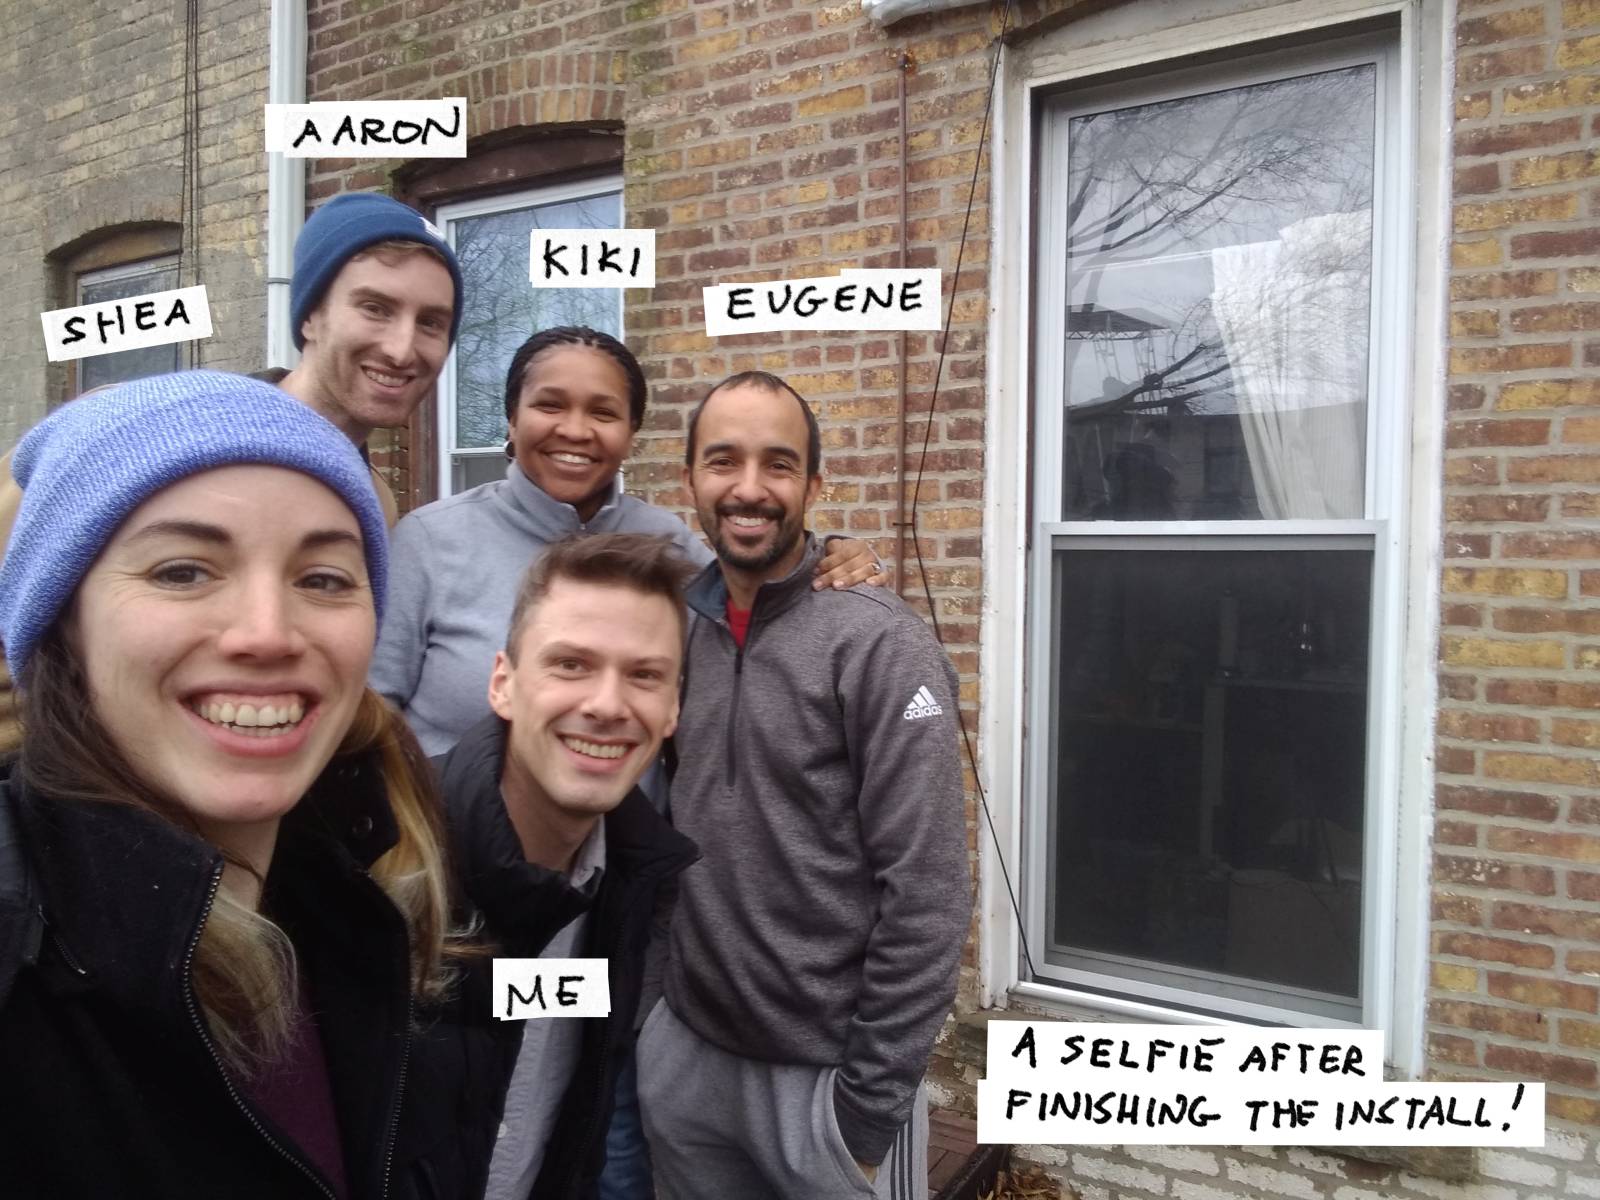 AARON
KIKI
EUGENE
SHEA
adidas
ME
A SELFIE AFTER
FINISHING THE INSTALL!